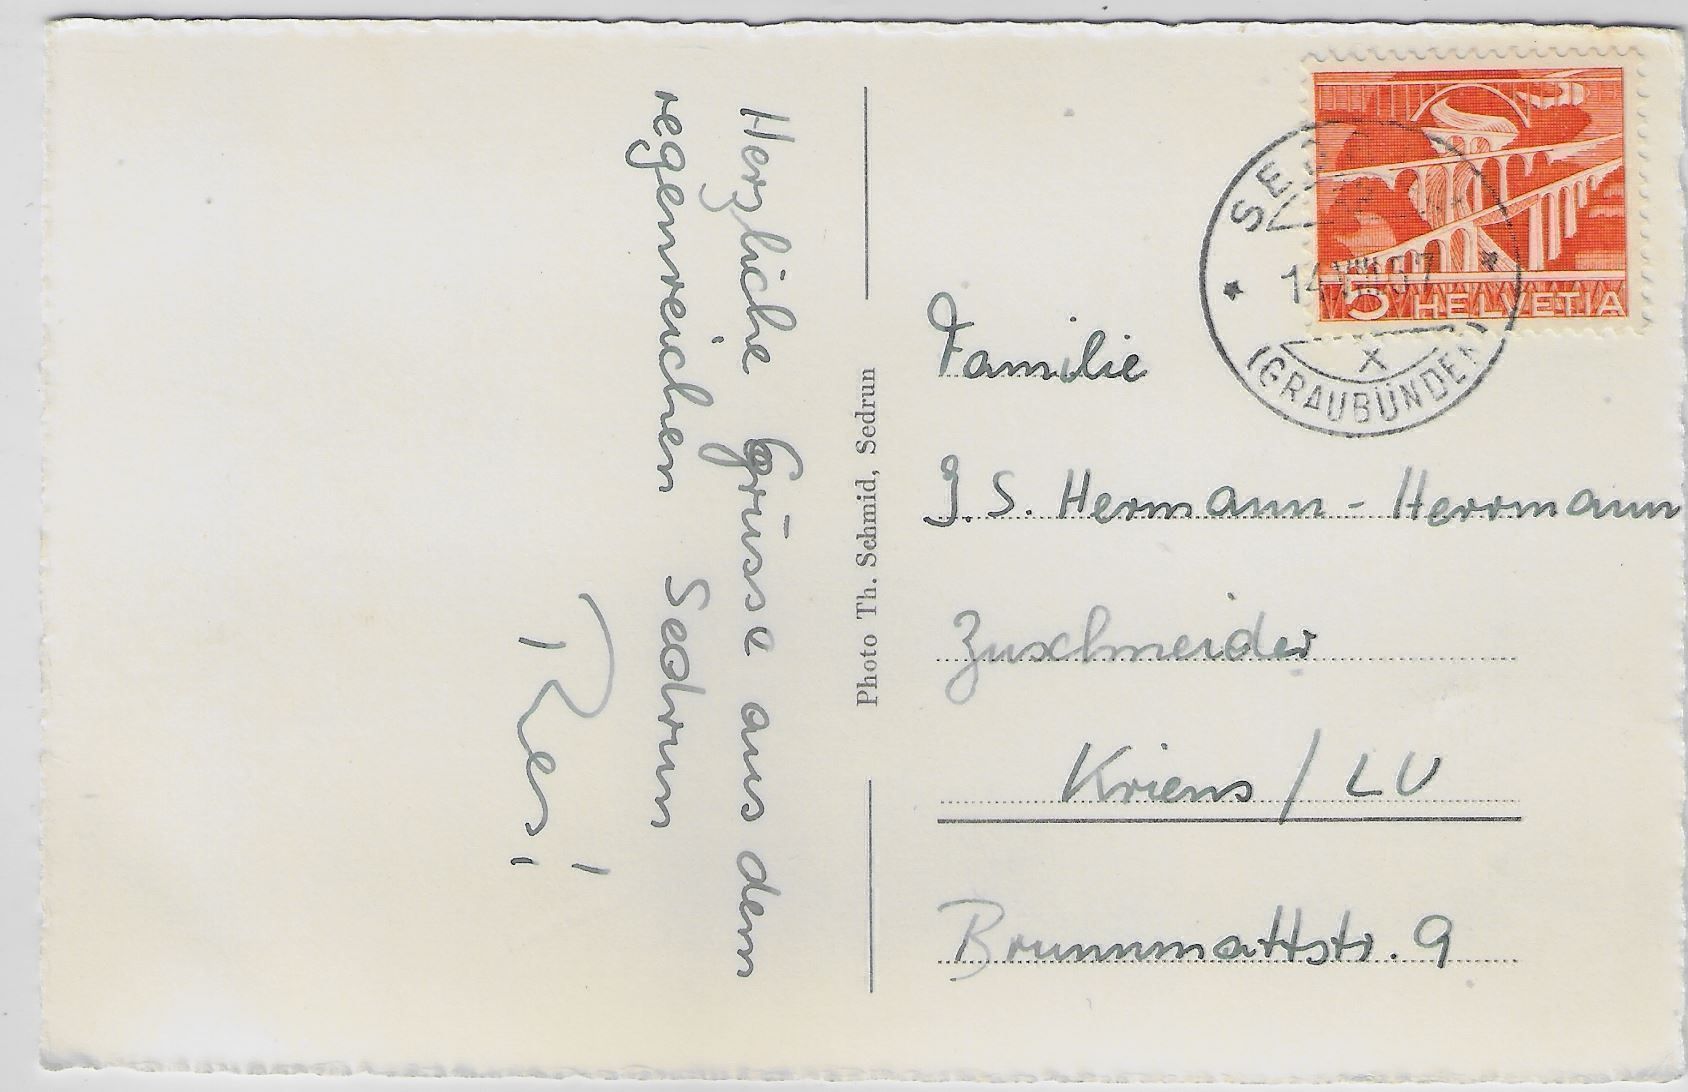 Herzliche Grüsse aus dem
regenreichen Sedrun
Res!
Photo Th. Schmid, Sedrun
5 HELVETIA
(GRAUBÜNDEN)
Familie
J. S. Hermann - Herrmann
Zuschneider
Kriens / LU
Brunnmattstr. 9